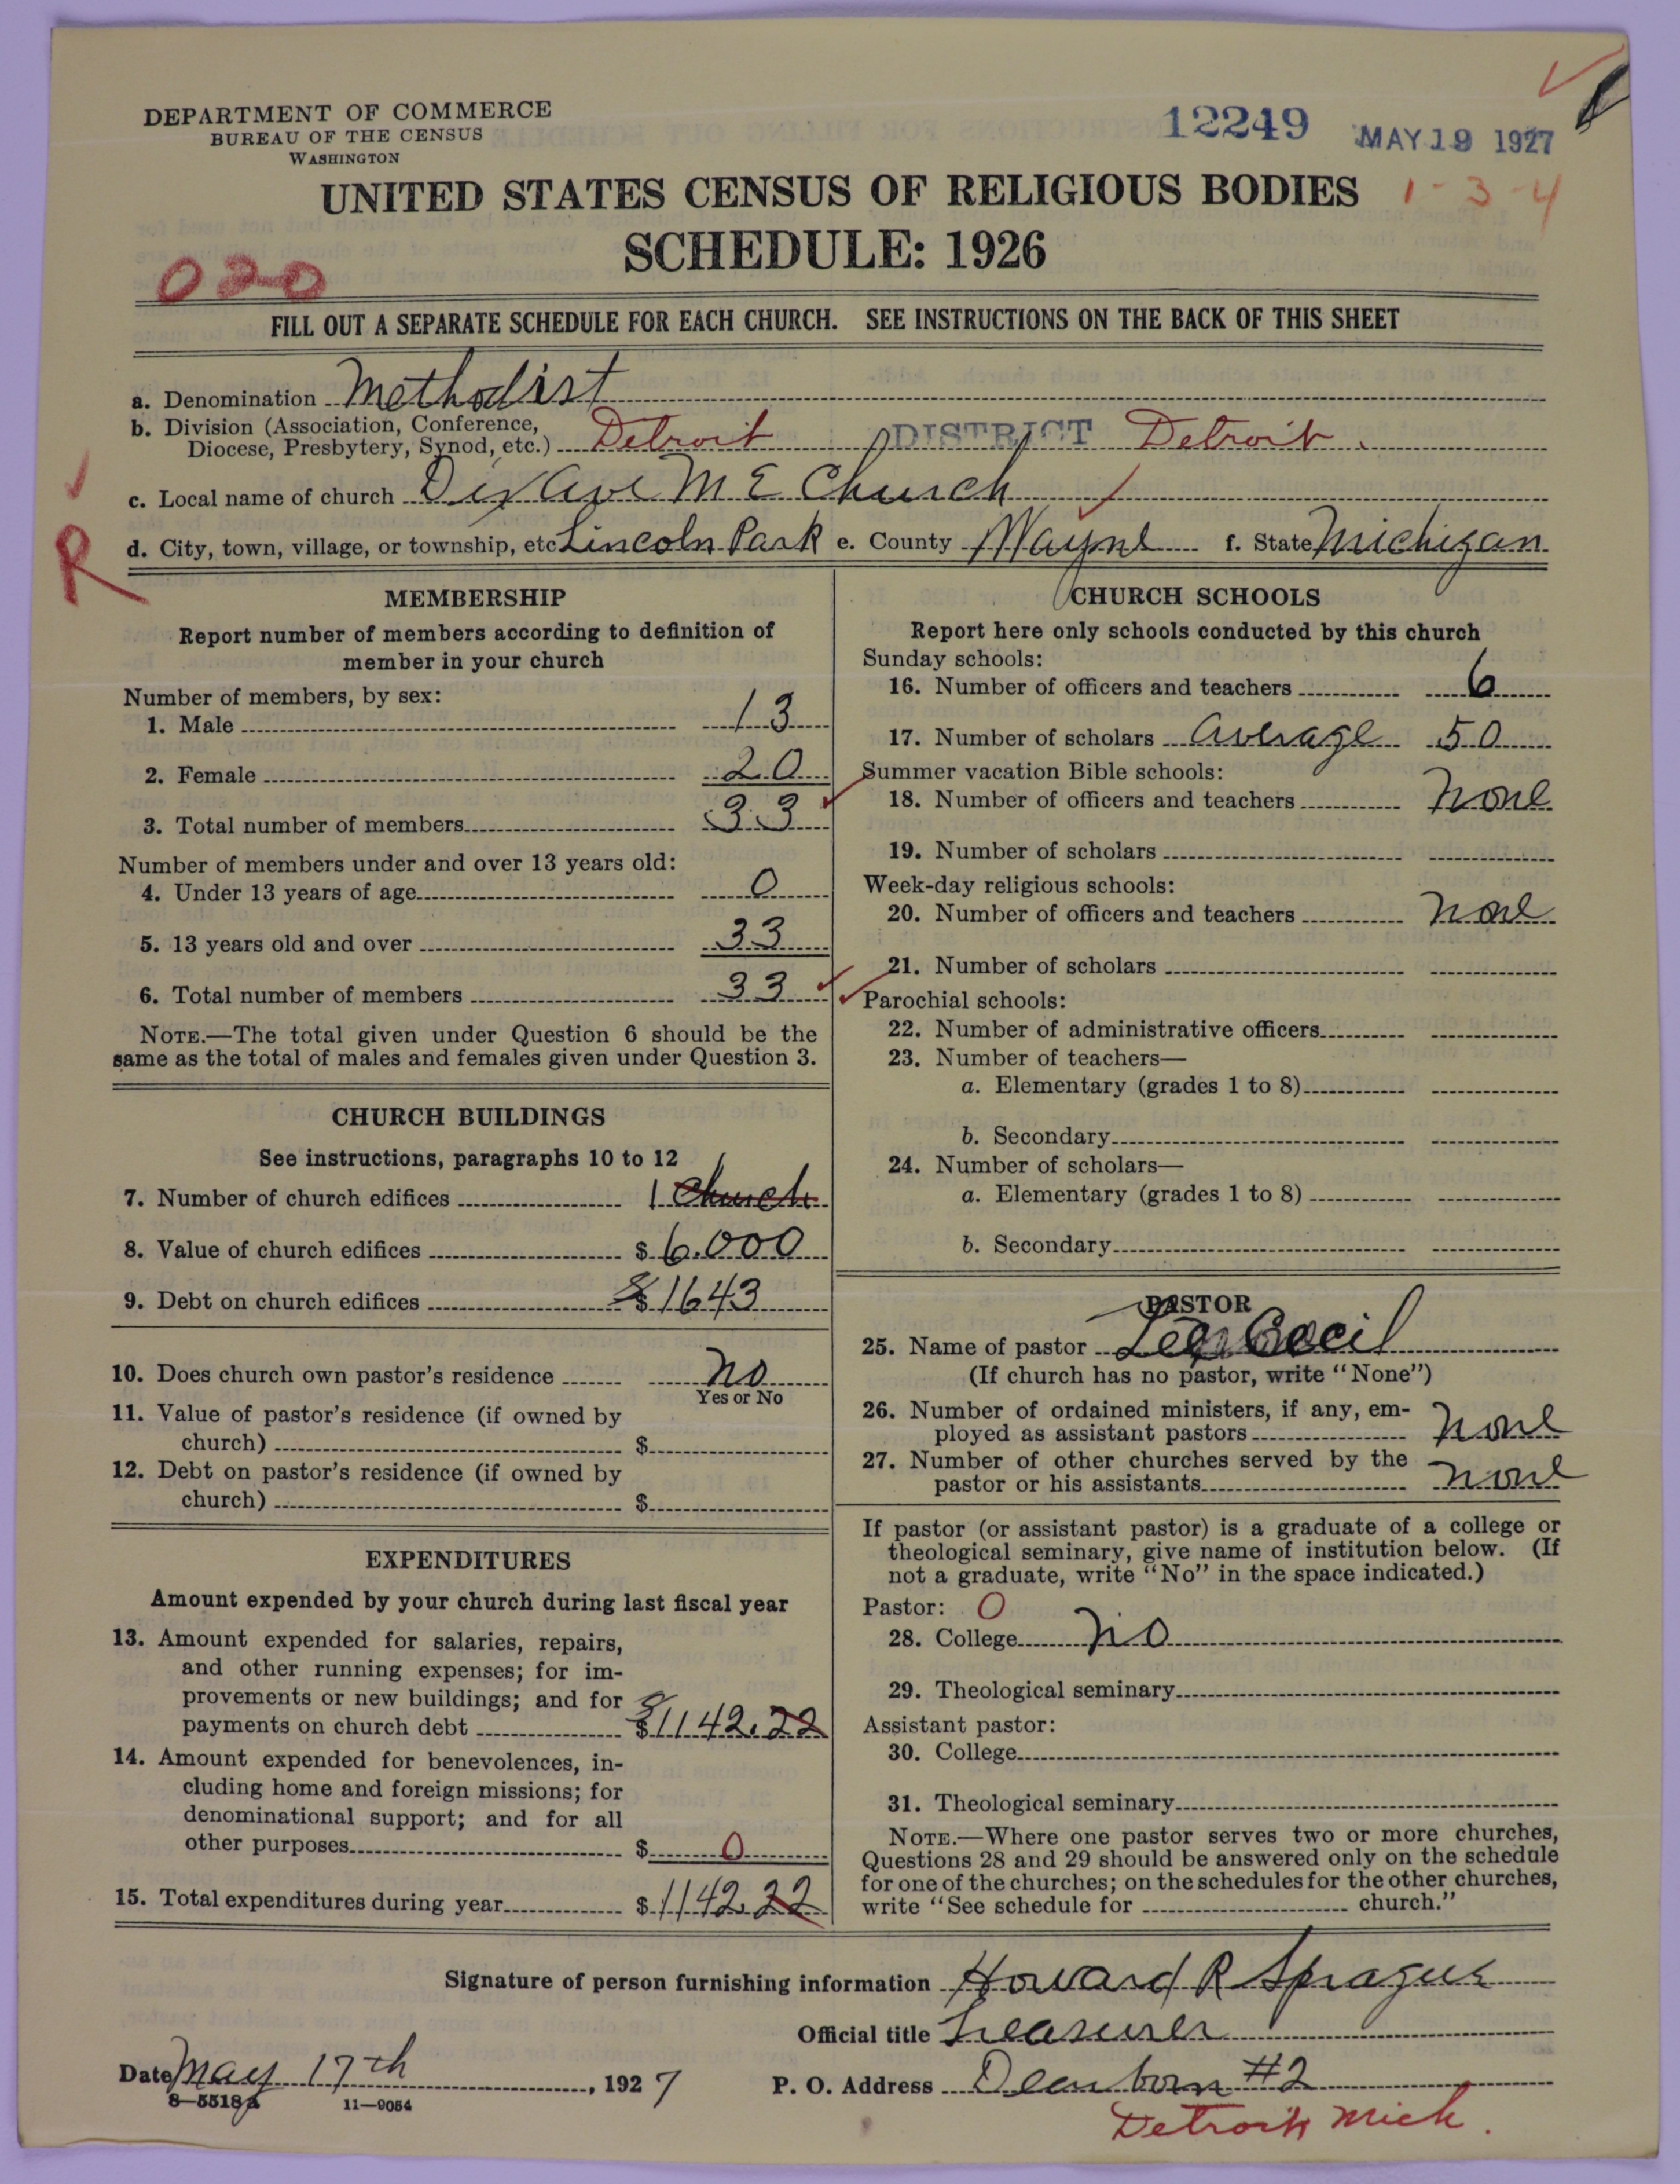 DEPARTMENT OF COMMERCE
BUREAU OF THE CENSUS
WASHINGTON
12249
MAY 19 1927
UNITED STATES CENSUS OF RELIGIOUS BODIES
1-3-4
SCHEDULE: 1926
020
FILL OUT A SEPARATE SCHEDULE FOR EACH CHURCH. SEE INSTRUCTIONS ON THE BACK OF THIS SHEET
a. Denomination Methodist
b. Division (Association, Conference,
Diocese, Presbytery, Synod, etc.) Detroit DISTRICT Detroit.
c. Local name of church Dix Ave M E Church
R
d. City, town, village, or township, etc Lincoln Park e. County Wayne f. State Michigan
MEMBERSHIP
Report number of members according to definition of
member in your church
Number of members, by sex:
1. Male 13
2. Female 20
3. Total number of members 33
Number of members under and over 13 years old:
4. Under 13 years of age 0
5. 13 years old and over 33
6. Total number of members 33
NOTE.—The total given under Question 6 should be the
same as the total of males and females given under Question 3.
CHURCH BUILDINGS
See instructions, paragraphs 10 to 12
7. Number of church edifices 1 Church
8. Value of church edifices $ 6.000
9. Debt on church edifices $ 1643
10. Does church own pastor's residence No
Yes or No
11. Value of pastor's residence (if owned by
church) $
12. Debt on pastor's residence (if owned by
church) $
EXPENDITURES
Amount expended by your church during last fiscal year
13. Amount expended for salaries, repairs,
and other running expenses; for im-
provements or new buildings; and for
payments on church debt $1142.22
14. Amount expended for benevolences, in-
cluding home and foreign missions; for
denominational support; and for all
other purposes $ 0
15. Total expenditures during year $ 1142.22
CHURCH SCHOOLS
Report here only schools conducted by this church
Sunday schools:
16. Number of officers and teachers 6
17. Number of scholars Average 50
Summer vacation Bible schools:
18. Number of officers and teachers None
19. Number of scholars
Week-day religious schools:
20. Number of officers and teachers None
21. Number of scholars
Parochial schools:
22. Number of administrative officers
23. Number of teachers—
a. Elementary (grades 1 to 8)
b. Secondary
24. Number of scholars—
a. Elementary (grades 1 to 8)
b. Secondary
PASTOR
25. Name of pastor Cecil
(If church has no pastor, write "None")
26. Number of ordained ministers, if any, em-
ployed as assistant pastors None
27. Number of other churches served by the
pastor or his assistants None
If pastor (or assistant pastor) is a graduate of a college or
theological seminary, give name of institution below. (If
not a graduate, write "No" in the space indicated.)
Pastor: 0
28. College No
29. Theological seminary
Assistant pastor:
30. College
31. Theological seminary
NOTE.—Where one pastor serves two or more churches,
Questions 28 and 29 should be answered only on the schedule
for one of the churches; on the schedules for the other churches,
write "See schedule for church."
Signature of person furnishing information Howard R Sprague
Official title Treasurer
Date May 17th, 1927
P. O. Address Dearborn #2
8—5518a 11—9054
Detroit Mich.